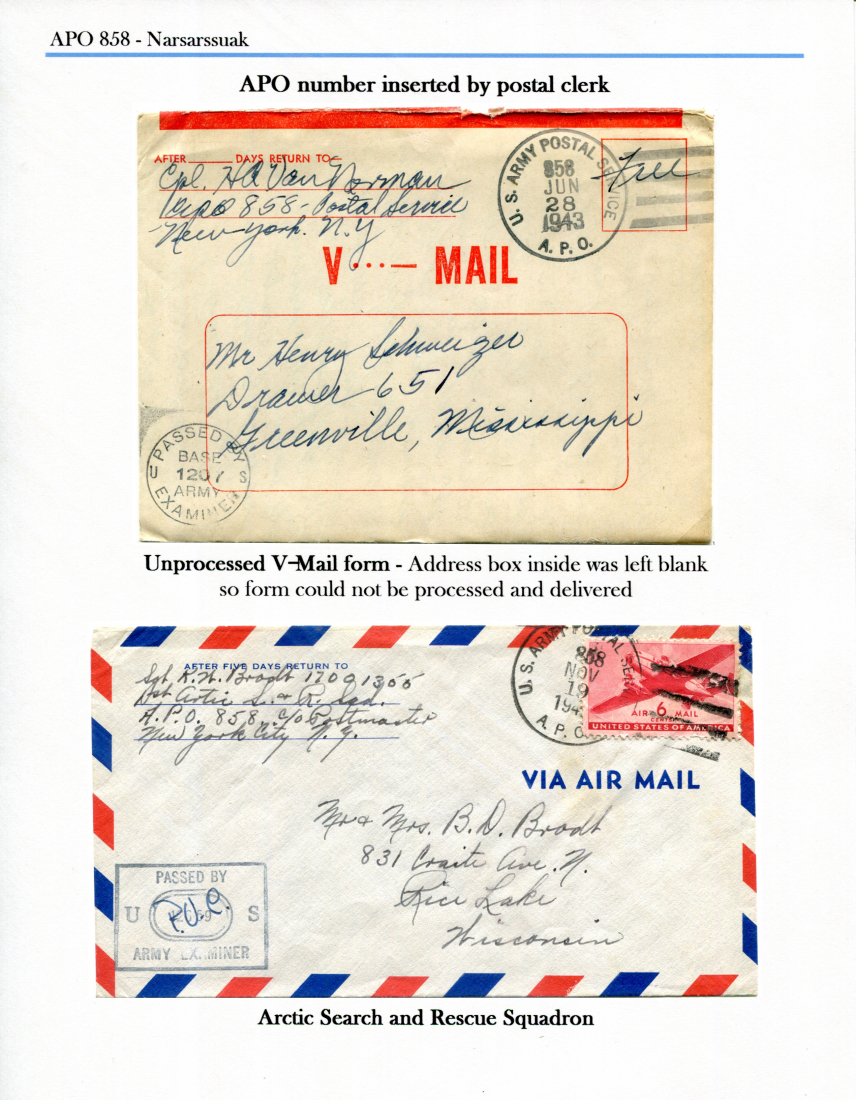 APO 858 - Narsarssuak
APO number inserted by postal clerk
AFTER ______ DAYS RETURN TO—
Cpl. H A Van Norman
APO 858 - Postal Service
New York. N.Y
U. S. ARMY POSTAL SERVICE
858
JUN
28
1943
A. P. O.
Free
V ···— MAIL
Mr Henry Schweizer
Drawer 651
Greenville, Mississippi
PASSED BY
BASE
U 1207 S
ARMY
EXAMINER
Unprocessed V-Mail form - Address box inside was left blank
so form could not be processed and delivered
AFTER FIVE DAYS RETURN TO
Sgt. R. W. Brodt 17091355
1st Artic S. & R. Sqd.
A.P.O. 858, c/o Postmaster
New York City N. Y.
U. S. ARMY POSTAL SER
858
NOV
19
194
A. P. O
AIR 6¢ MAIL
CENTS
UNITED STATES OF AMERICA
VIA AIR MAIL
Mr & Mrs. B. D. Brodt
831 Ave. N.
Rice Lake
Wisconsin
PASSED BY
U S
P.V.C.
ARMY EXAMINER
Arctic Search and Rescue Squadron